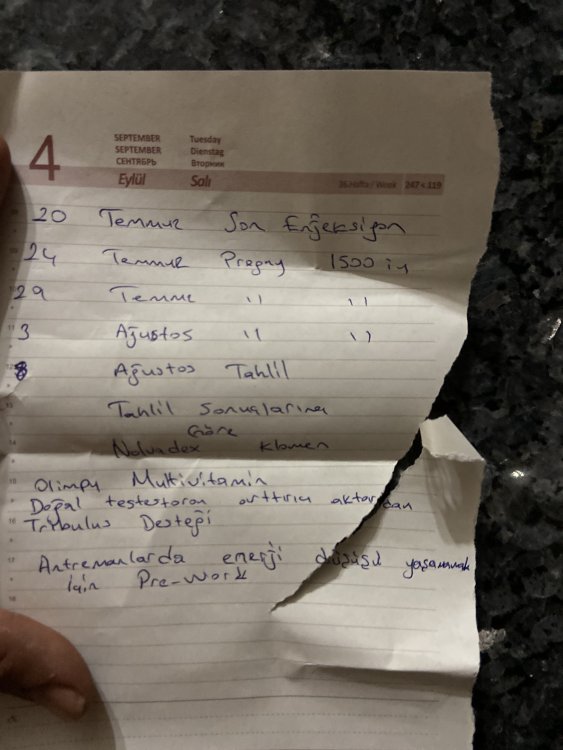 4
SEPTEMBER Tuesday
SEPTEMBER Dienstag
СЕНТЯБРЬ Вторник
Eylül Salı 36.Hafta / Week 247 < 119
20 Temmuz Son Enjeksiyon
24 Temmuz Pregny 1500 iu
29 Temmuz '' ''
3 Ağustos '' ''
8 Ağustos Tahlil
Tahlil Sonuçlarına
Göre
Nolvadex Klomen
Olimpy Multivitamin
Doğal testesteron arttırıcı aktardan
Tribulus Desteği
Antremanlarda enerji düşüşü yaşamamak
için Pre-Work